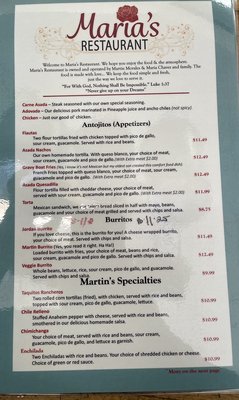 Maria's
RESTAURANT
Welcome to Maria's Restaurant. We hope you enjoy the food & the atmosphere.
Maria's Restaurant is owned and operated by Martin Morales & Maria Chavez and family. The
food is made with love... We keep the food simple and fresh,
just the way we love to serve it.
"For With God, Nothing Shall Be Impossible." Luke 1:37
"Never give up on your Dreams"
Carne Asada - Steak seasoned with our own special seasoning.
Adovada - Our delicious pork marinated in Pineapple juice and ancho chiles (not spicy).
Chicken - Just our good ol' chicken.
Antojitos (Appetizers)
Flautas
Two flour tortillas fried with chicken topped with pico de gallo,
sour cream, guacamole. Served with rice and beans. $11.49
Asada Nachos
Our own homemade tortilla. With queso blanco, your choice of meat,
sour cream, guacamole and pico de gallo. (With Extra meat $2.00) $12.49
Gravy Boat Fries
French Fries topped with queso blanco, your choice of meat, sour cream,
guacamole and pico de gallo. (With Extra meat $2.00) $12.49
Asada Quesadilla
Flour tortilla filled with cheddar cheese, your choice of meat,
sour cream, guacamole and pico de gallo. (With Extra meat $2.00) $11.99
Torta
Mexican sandwich, bread sliced in half with mayo, beans,
guacamole and your choice of meat grilled and served with chips and salsa. $8.75
Burritos $11.25
Jordan Burrito
If you love cheese, this is the burrito for you! A cheese wrapped burrito,
your choice of meat. Served with chips and salsa. $11.49
Martin Burrito (Yes, you read it right. Ha Ha!)
Loaded burrito with fries, your choice of meat, beans and rice,
sour cream, guacamole, pico de gallo. Served with chips and salsa. $12.49
Veggie Burrito
Whole beans, lettuce, rice, sour cream, pico de gallo, and guacamole.
Served with chips and salsa. $9.99
Martin's Specialties
Taquitos Rancheros
Two rolled corn tortillas (fried), with chicken, served with rice and beans,
topped with sour cream, pico de gallo, guacamole, lettuce. $10.99
Chile Relleno
Stuffed Anaheim pepper with cheese, served with rice and beans,
smothered in our delicious homemade salsa. $10.99
Chimichanga
Your choice of meat, served with rice and beans, sour cream,
guacamole, pico de gallo, and lettuce as garnish. $10.99
Enchilada
Two Enchiladas with rice and beans. Your choice of shredded chicken or cheese.
Choice of green or red sauce. $10.99
More on the next page